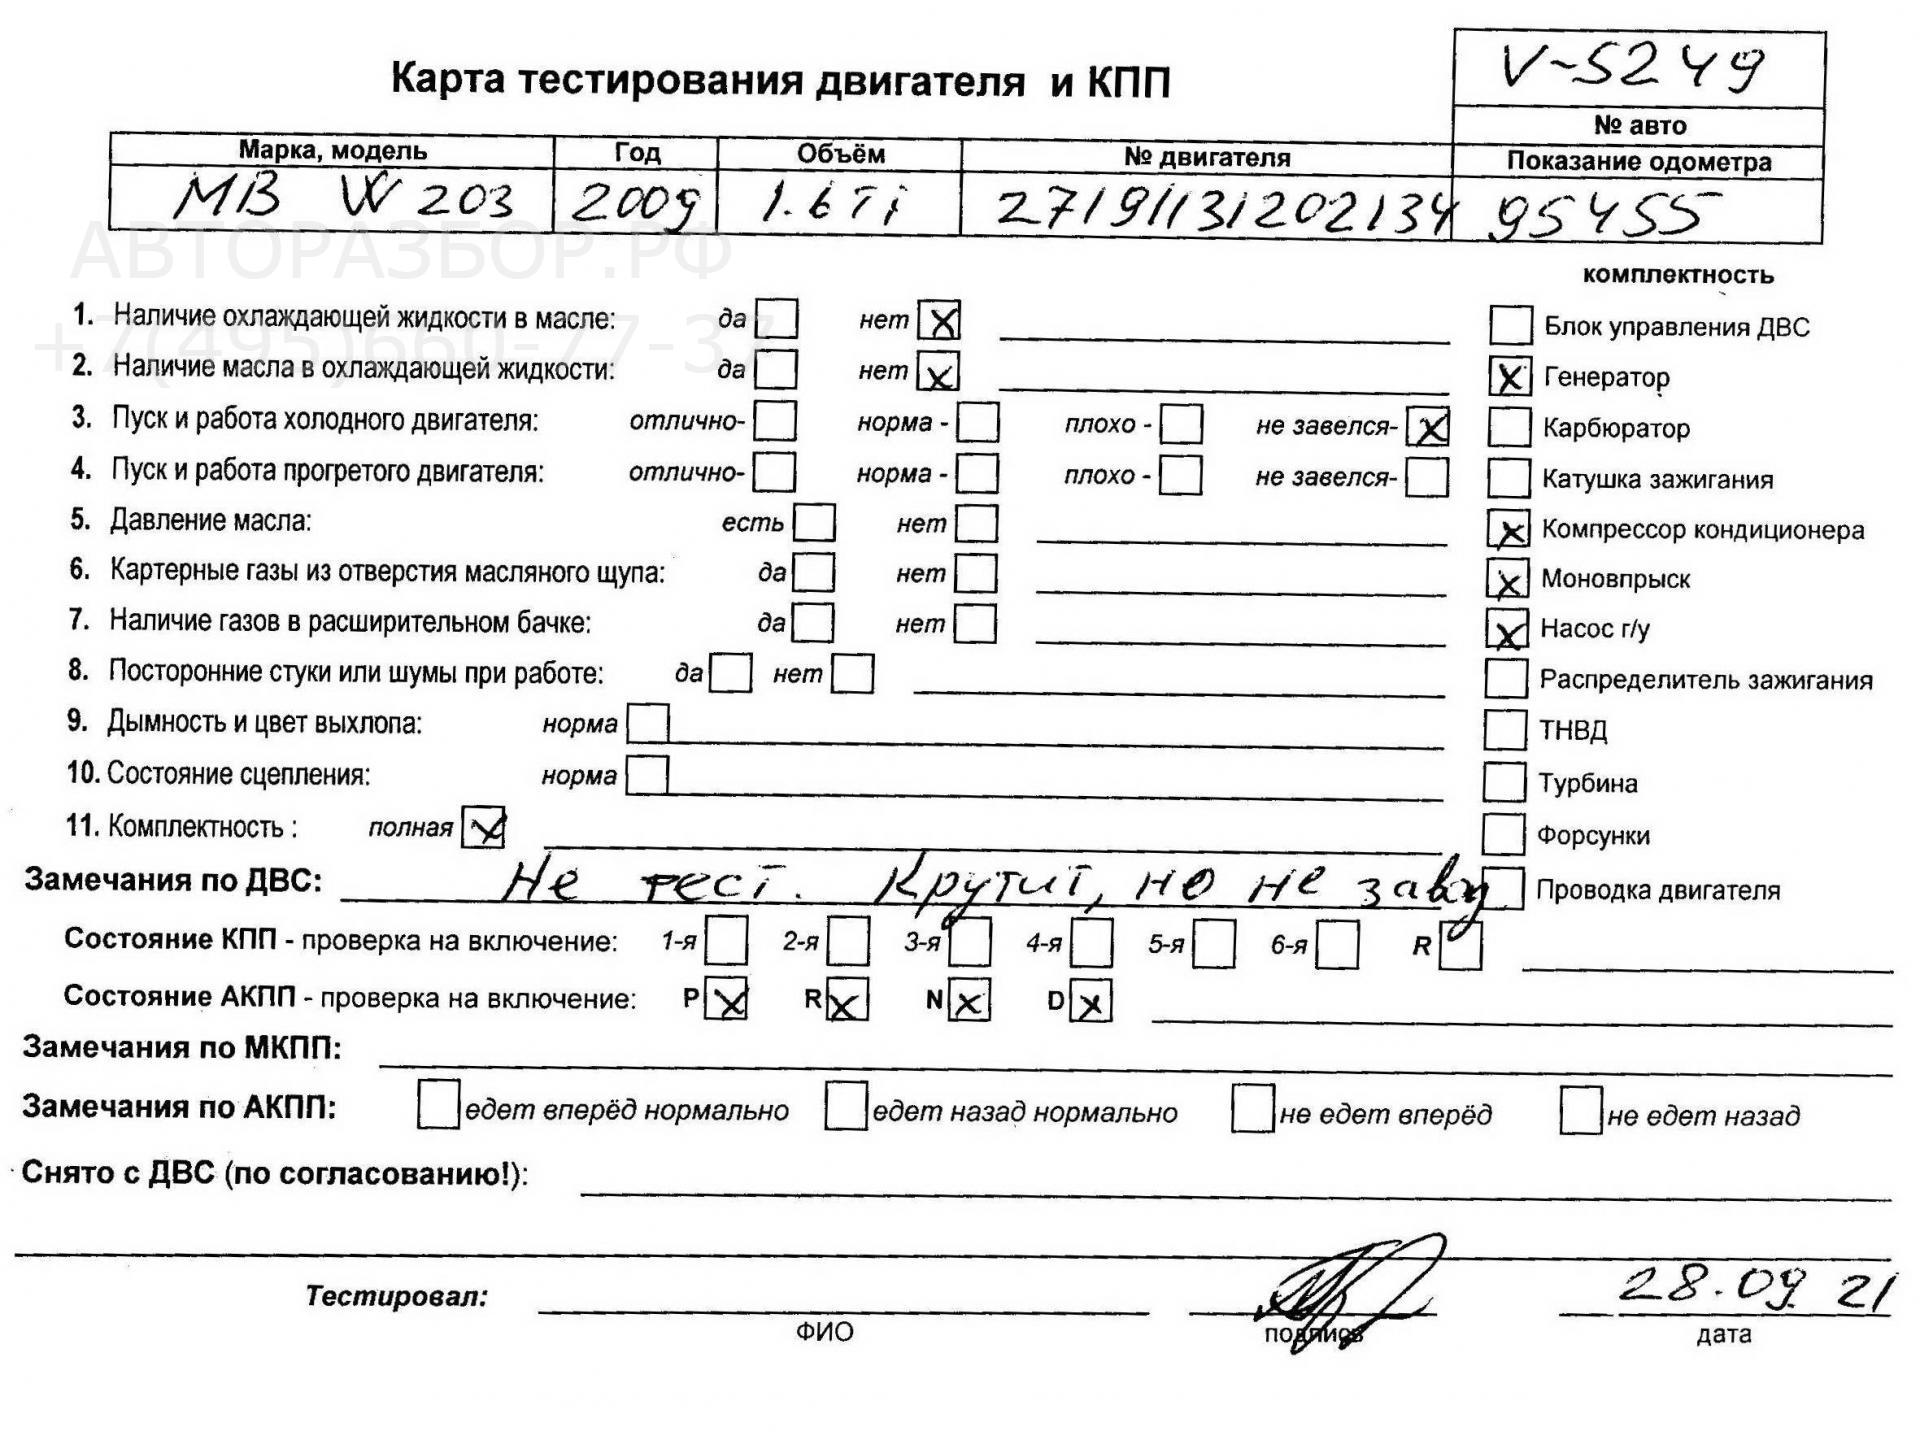 V-5249
Карта тестирования двигателя и КПП
№ авто
Марка, модель Год Объём № двигателя Показание одометра
MB W203 2009 1.6Ti 27191131202134 95455
АВТОРАЗБОР.РФ
+7(495)660-77-37
комплектность
1. Наличие охлаждающей жидкости в масле: да нет X
Блок управления ДВС
2. Наличие масла в охлаждающей жидкости: да нет X
X Генератор
3. Пуск и работа холодного двигателя: отлично- норма - плохо - не завелся- X
Карбюратор
4. Пуск и работа прогретого двигателя: отлично- норма - плохо - не завелся-
Катушка зажигания
5. Давление масла: есть нет
X Компрессор кондиционера
6. Картерные газы из отверстия масляного щупа: да нет
X Моновпрыск
7. Наличие газов в расширительном бачке: да нет
X Насос г/у
8. Посторонние стуки или шумы при работе: да нет
Распределитель зажигания
9. Дымность и цвет выхлопа: норма
ТНВД
10. Состояние сцепления: норма
Турбина
11. Комплектность : полная X
Форсунки
Замечания по ДВС: Не тест. Крутит, но не завод
Проводка двигателя
Состояние КПП - проверка на включение: 1-я 2-я 3-я 4-я 5-я 6-я R
Состояние АКПП - проверка на включение: P X R X N X D X
Замечания по МКПП:
Замечания по АКПП: едет вперёд нормально едет назад нормально не едет вперёд не едет назад
Снято с ДВС (по согласованию!):
Тестировал: 28.09.21
ФИО подпись дата